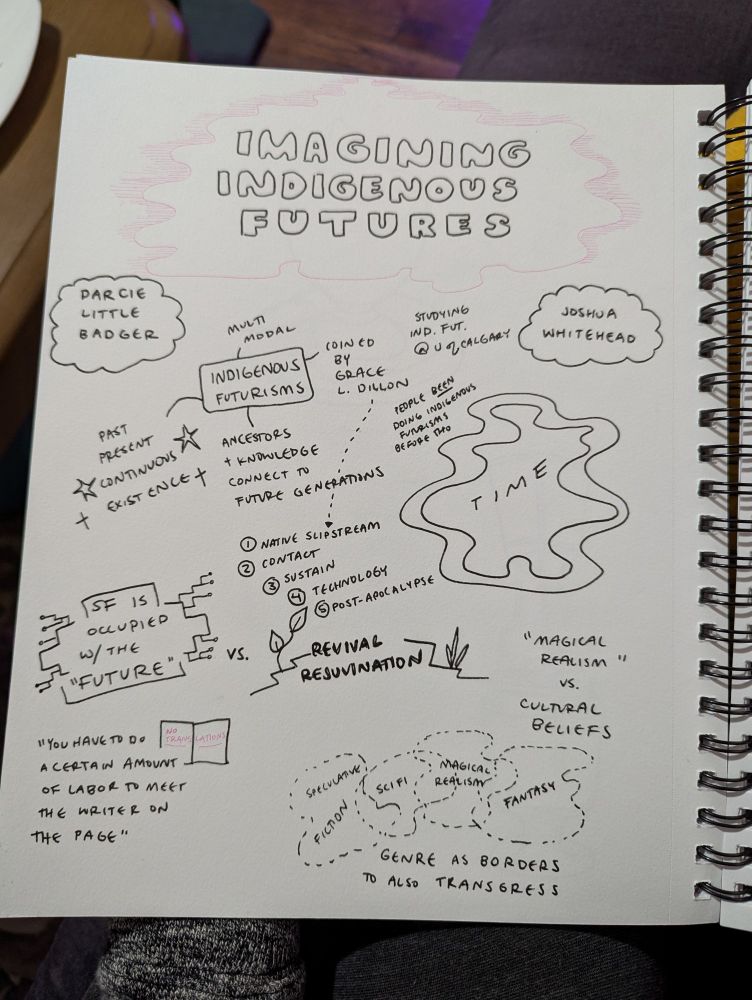 IMAGINING
INDIGENOUS
FUTURES
DARCIE
LITTLE
BADGER
JOSHUA
WHITEHEAD
MULTI
MODAL
INDIGENOUS
FUTURISMS
COINED
BY
GRACE
L. DILLON
STUDYING
IND. FUT.
@ U of CALGARY
PEOPLE BEEN
DOING INDIGENOUS
FUTURISMS
BEFORE THO
PAST
PRESENT
CONTINUOUS
EXISTENCE
ANCESTORS
+ KNOWLEDGE
CONNECT TO
FUTURE GENERATIONS
TIME
1 NATIVE SLIPSTREAM
2 CONTACT
3 SUSTAIN
4 TECHNOLOGY
5 POST-APOCALYPSE
SF IS
OCCUPIED
W/ THE
"FUTURE"
VS.
REVIVAL
RESUVINATION
"MAGICAL
REALISM"
VS.
CULTURAL
BELIEFS
"YOU HAVE TO DO
A CERTAIN AMOUNT
OF LABOR TO MEET
THE WRITER ON
THE PAGE"
NO
TRANSLATIONS
SPECULATIVE
FICTION
SCIFI
MAGICAL
REALISM
FANTASY
GENRE AS BORDERS
TO ALSO TRANSGRESS